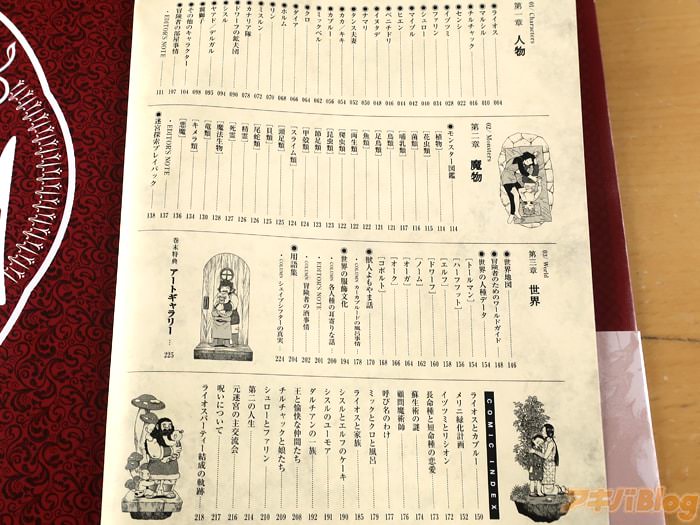 01: Characters
第一章 人物
●ライオス 004
●マルシル 010
●チルチャック 016
●センシ 022
●イヅツミ 028
●ファリン
●シュロー
●マイヅル
●ヒエン
●ベニチドリ
●イヌタデ
●ナマリ
●タンス夫妻
●カカ/キキ
●カブルー
●ミックベル
●クロ
●ダイア
●ホルム
●リン
●ミスルン
●カナリア隊
●ドワーフの鉱夫団
●シスル
●ヤアド/デルガル
●翼獅子
●その他のキャラクター 104
●冒険者の部屋事情 107
・EDITOR'S NOTE 111
02: Monsters
第二章 魔物
●モンスター図鑑 114
[植物] 114
[花虫類]
[菌類]
[哺乳類]
[鳥類]
[足鳥類]
[魚類]
[両生類]
[爬虫類]
[昆虫類]
[節足類]
[甲殻類]
[スライム類]
[頭足類]
[貝類]
[尾蛇類]
[精霊]
[死霊]
[魔法生物]
[竜類]
[キメラ類]
[悪魔] 136
・EDITOR'S NOTE 137
●迷宮探索プレイバック 138
03: World
第三章 世界
●世界地図 146
●冒険者のためのワールドガイド 148
●世界の人種データ
[トールマン]
[ハーフフット]
[エルフ]
[ドワーフ]
[ノーム]
[オーガ]
[オーク]
[コボルト]
●獣人よもやま話 170
・COLUMN カーカブルードの風呂事情 178
●世界の服飾文化 194
・COLUMN 各人種の耳寄りな話 200
・EDITOR'S NOTE 201
・COLUMN 冒険者の酒事情 202
●用語集 204
・COLUMN シェイプシフターの真実 224
巻末特典 アートギャラリー … 225
COMIC INDEX
ライオスとカブルー 150
メリニ緑化計画 152
イヅツミとリシオン 155
長命種と短命種の恋愛 159
蘇生術の謎 161
顧問魔術師 165
呼び名のわけ 169
ミックとクロと風呂 172
ライオスと家族 174
シスルとエルフのケーキ 177
シスルのユーモア 179
ダルチアンの一族 183
王と愉快な仲間たち
チルチャックと娘たち
シュローとファリン
第二の人生
元迷宮の主交流会 216
呪いについて 217
ライオスパーティー結成の軌跡 218
アキバBlog